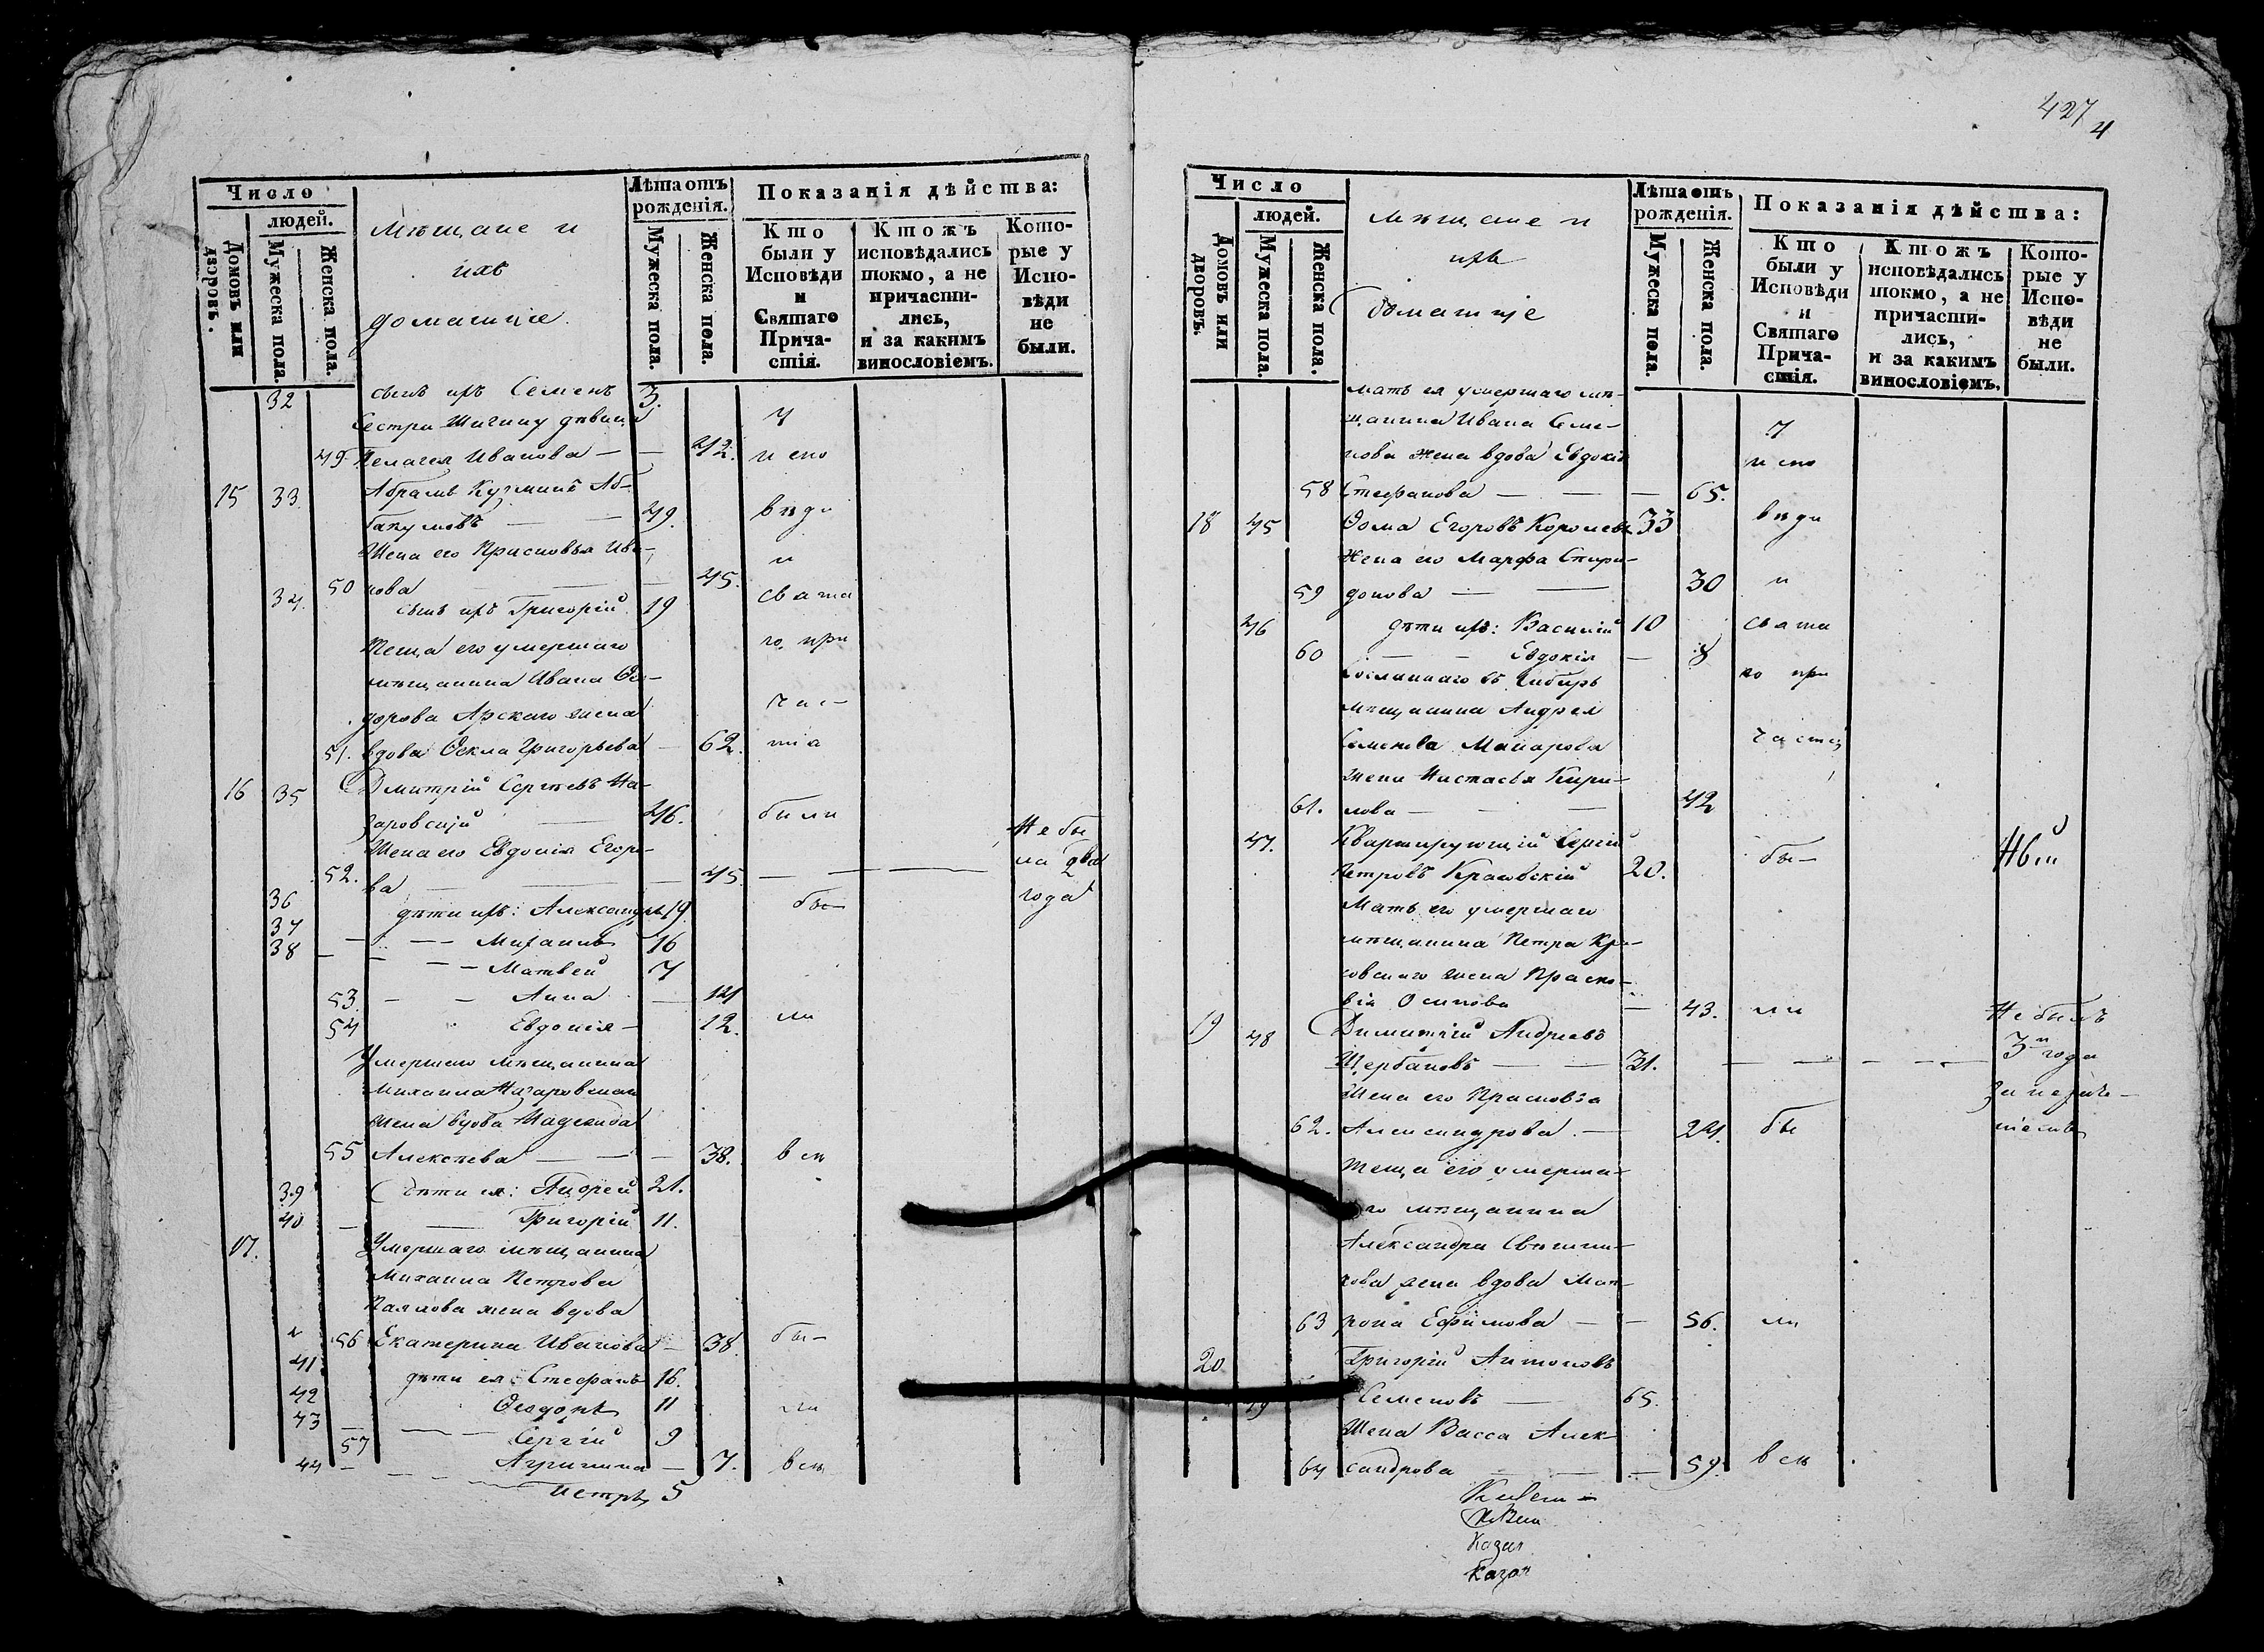 Число
людей.
Домовъ или дворовъ.
Мужеска пола.
Женска пола.
Мѣщане и
ихъ
домашніе.
Лѣта отъ рожденія.
Мужеска пола.
Женска пола.
Показанія дѣйства:
Кто были у Исповѣди и Святаго Прича-стія.
Ктожъ исповѣдались токмо, а не причасти-лись, и за какимъ винословіемъ.
Кото-рые у Испо-вѣди не были.
32 сынъ ихъ Семенъ 3.
Сестра девица
49 Пелагея Иванова — — 42. испо
15 33. Абрамъ Кузминъ Аб-
49. вѣди
Жена его Прасковья Ива- и
50 нова — — 45.
34. сынъ ихъ Григорій 19 свята
Теща его умершаго го при
мѣщанина Ивана Ѳе-
дорова Арскаго жена час-
51. вдова Ѳекла Григорьева — 62. тія
16 35 Дмитрій Сергѣевъ На-
заровскій — 46. были
Жена его Евдокія Егоро- Не бы
52. ва — — 45. — — ла два
36 дѣти ихъ: Александръ 19. бы— года
37 — — Михаилъ 16
38 — — Матвей 7
53. — — Анна — 14
54 Евдокія — 12. ли
Умершаго мѣщанина
Михаила Назаровскаго
жена вдова Надежда
55 Алексѣева — — — 38. всѣ
39 дѣти ея: Андрей 21.
40 — — Григорій 11.
17. Умершаго мѣщанина
Михаила Петрова
жена вдова
56 Екатерина Иванова — 38. бы—
41 дѣти ея: Стефанъ 16.
42 Ѳеодоръ 11 ли
43 — — Сергій 9
57 — 7. всѣ
44 — — — Петръ 5
427
4
Число
людей.
Домовъ или дворовъ.
Мужеска пола.
Женска пола.
Мѣщане и
ихъ
домашніе
Лѣта отъ рожденія.
Мужеска пола.
Женска пола.
Показанія дѣйства:
Кто были у Исповѣди и Святаго Прича-стія.
Ктожъ исповѣдались токмо, а не причасти-лись, и за какимъ винословіемъ.
Кото-рые у Испо-вѣди не были.
мать ея умершаго мѣ-
щанина Ивана Семе-
нова жена вдова Евдокія испо
58 Стефанова — — — 65.
18 45 Ѳома Егоровъ Королевъ 33 вѣди
Жена его Марфа Спири-
59 донова — — 30 и
46 дѣти ихъ: Василій 10 свята
60 — — Евдокія — 8
Сосланнаго въ Сибирь го при
мѣщанина Андрея
Семенова Макарова частія
жена Настасья Кири-
61. лова — — 42
47. Квартирующій Сергій
Петровъ 20. бы—
Мать его умершаго
мѣщанина Петра Кра-
совскаго жена Праско-
вія Осипова — 43. ли Не былъ
19 48 Димитрій Андреевъ
Щербаковъ — — 31. — — — — 3 года
Жена его Прасковья
62. Александрова. — 24. бы
Теща его умерша-
го мѣщанина
Александра
жена вдова Мат-
63 рона Ефимова — — 56. ли
20 Григорій Антоновъ
49 Семеновъ — 65.
Жена Васса Алек-
64 сандрова — — — 59. всѣ
Казан
Казан